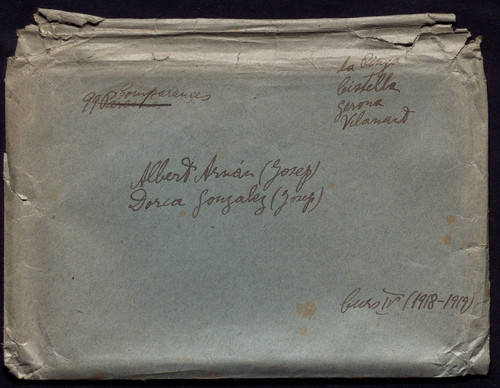 La Pinya
Cistella
Gerona
Vilanant
99 Comparances
Albert Arnán (Josep)
Dorca Gonzalez (Josep)
Curs IV (1918-1919)